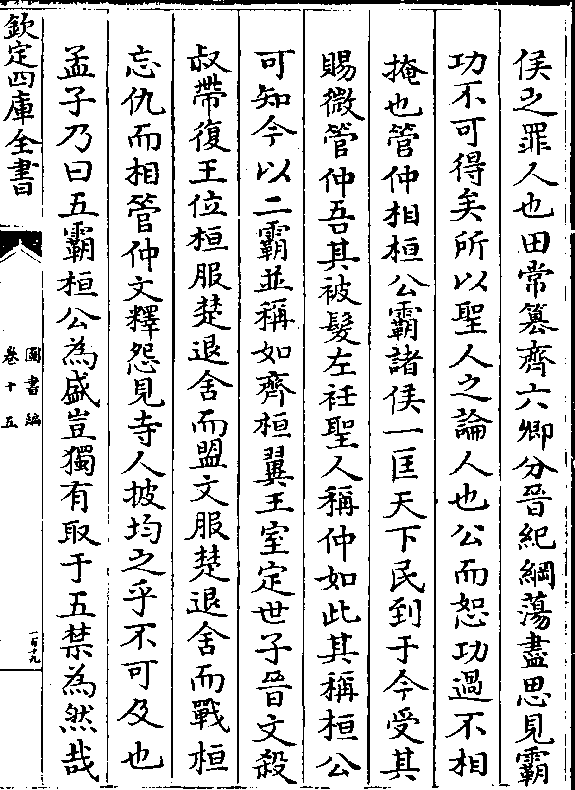 侯之罪人也田常簒齊六卿分晉紀綱蕩盡思見霸
功不可得矣所以聖人之論人也公而恕功過不相
掩也管仲相桓公霸諸侯一匡天下民到于今受其
賜微管仲吾其被髮左衽聖人稱仲如此其稱桓公
可知今以二霸並稱如齊桓翼王室定世子晉文殺
叔帶復王位桓服楚退舍而盟文服楚退舍而戰桓
忘仇而相管仲文釋怨見寺人披均之乎不可及也
孟子乃曰五霸桓公為盛豈獨有取于五禁為然哉
欽定四庫全書
圖書編
卷十五
一百十九